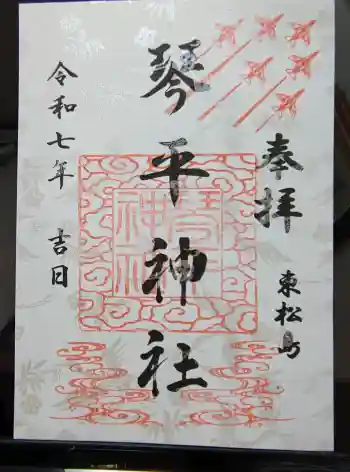 奉拝
東松島
琴平神社
令和七年 吉日
琴平
神社